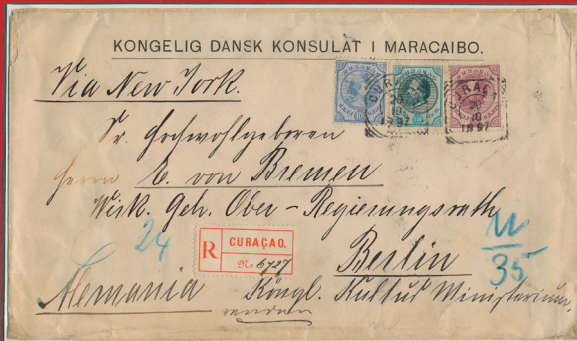 KONGELIG DANSK KONSULAT I MARACAIBO.
Via New York.
CURAÇAO
20
10
1897
CURAÇAO
20
10
1897
Sr. Hochwohlgeboren
Herrn E. von Bremen
Wirk. Geh. Ober-Regierungsrath
24
R CURAÇAO.
No 6727
Berlin
35
Alemania
Königl. Kultus Ministerium.